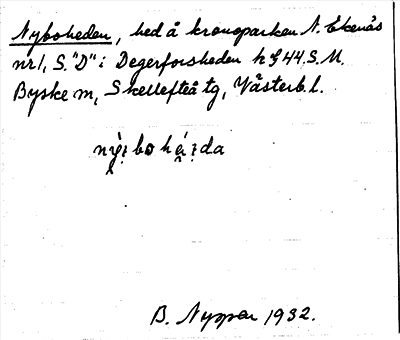 Nyboheden, hed å kronoparken N. Ekenäs
nr 1, S. "D" i Degerforsheden h S.M.
Byske m, Skellefteå tg, Västerb. l.
B. Nyman 1932.